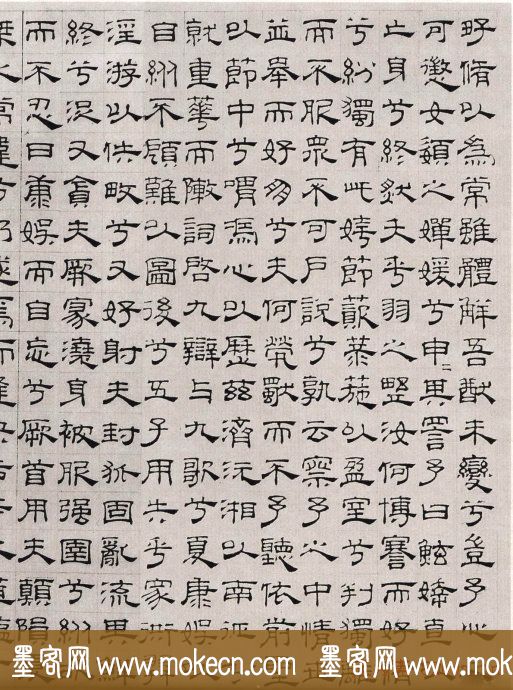 好脩以為常雖體解吾猶未變兮豈予心
可懲女嬃之嬋媛兮申=其詈予曰鮌婞直
亡身兮終殀夫乎羽之埜汝何博謇而好
兮紛獨有此姱節薋菉葹以盈室兮判獨
而不服眾不可戶說兮孰云察予之中情
並舉而好朋兮夫何煢獨而不予聽依前
以節中兮喟馮心以歷茲濟沅湘以南征
就重華而敶詞啓九辯与九歌兮夏康娛
自縱不顧難以圖後兮五子用失乎家衖
淫游以佚畋兮又好射夫封狐固亂流其
終兮浞又貪夫厥家澆身被服强圉兮縱
而不忍日康娛而自忘兮厥首用夫顛隕
墨客网 www.mokecn.com 墨客网 www.mokecn.com